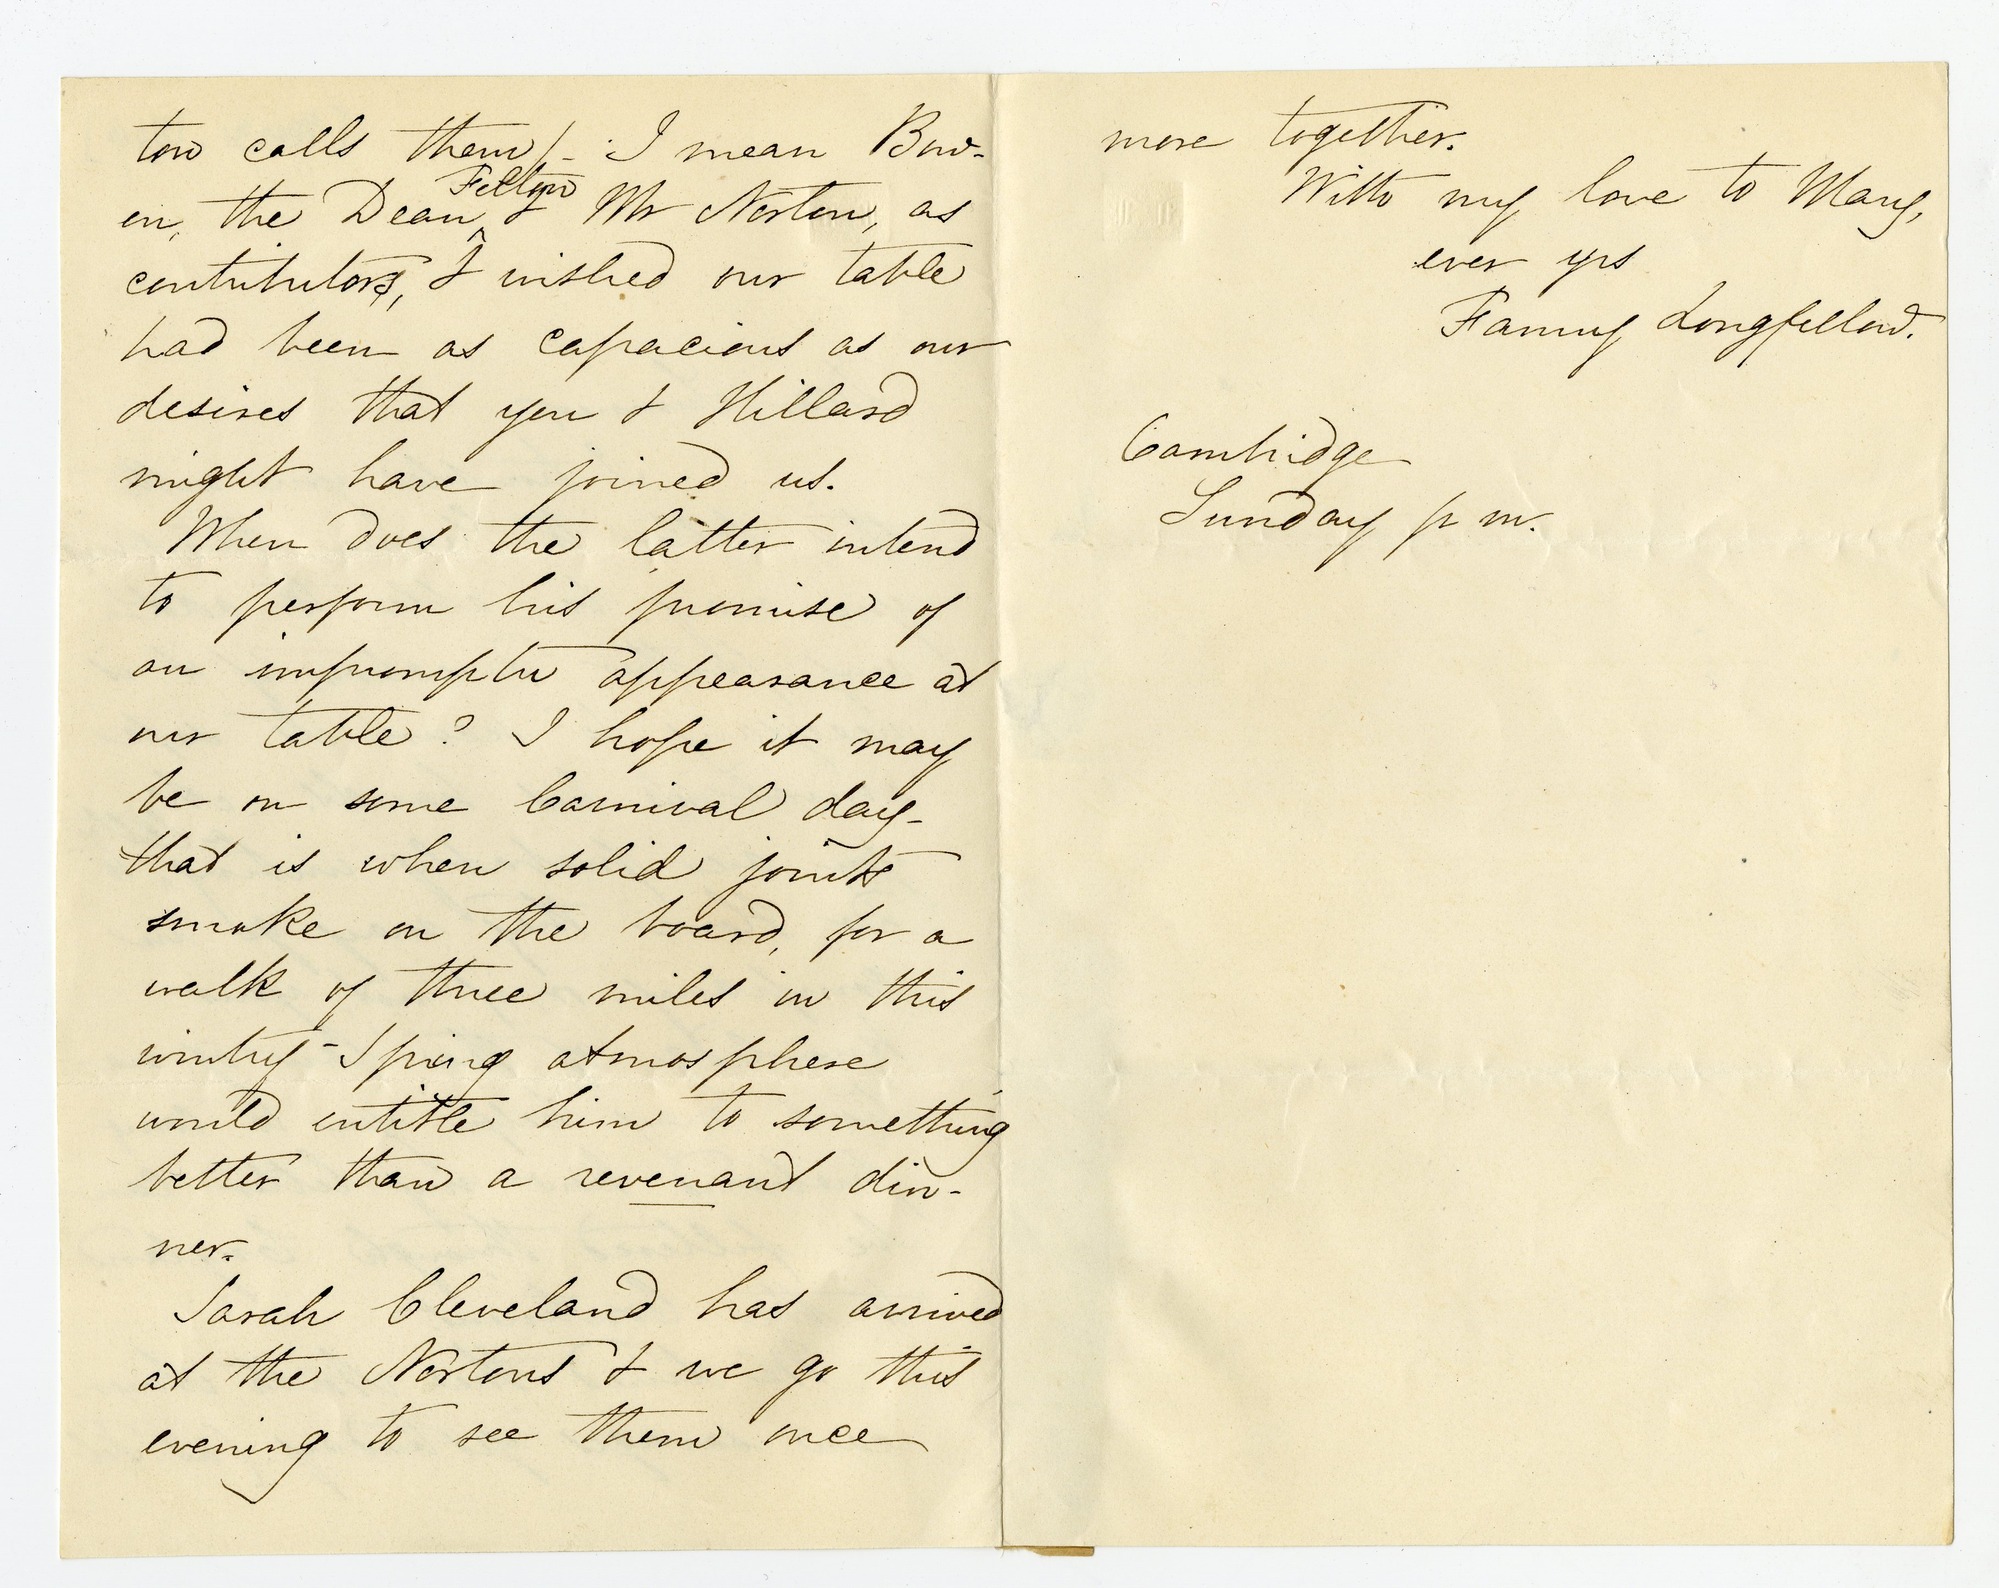 ton calls them) – I mean Bow-
en, the Dean, Felton & Mr Norton, as
contributors, & wished our table
had been as capacious as our
desires that you & Hillard
might have joined us.
When does the latter intend
to perform his promise of
an impromptu appearance at
our table? I hope it may
be on some Carnival day –
that is when solid joints
smoke on the board, for a
walk of three miles in this
wintry-Spring atmosphere
would entitle him to something
better than a revenant din-
ner.
Sarah Cleveland has arrived
at the Nortons & we go this
evening to see them once
more together.
With my love to Mary,
ever yrs
Fanny Longfellow.
Cambridge
Sunday p m.